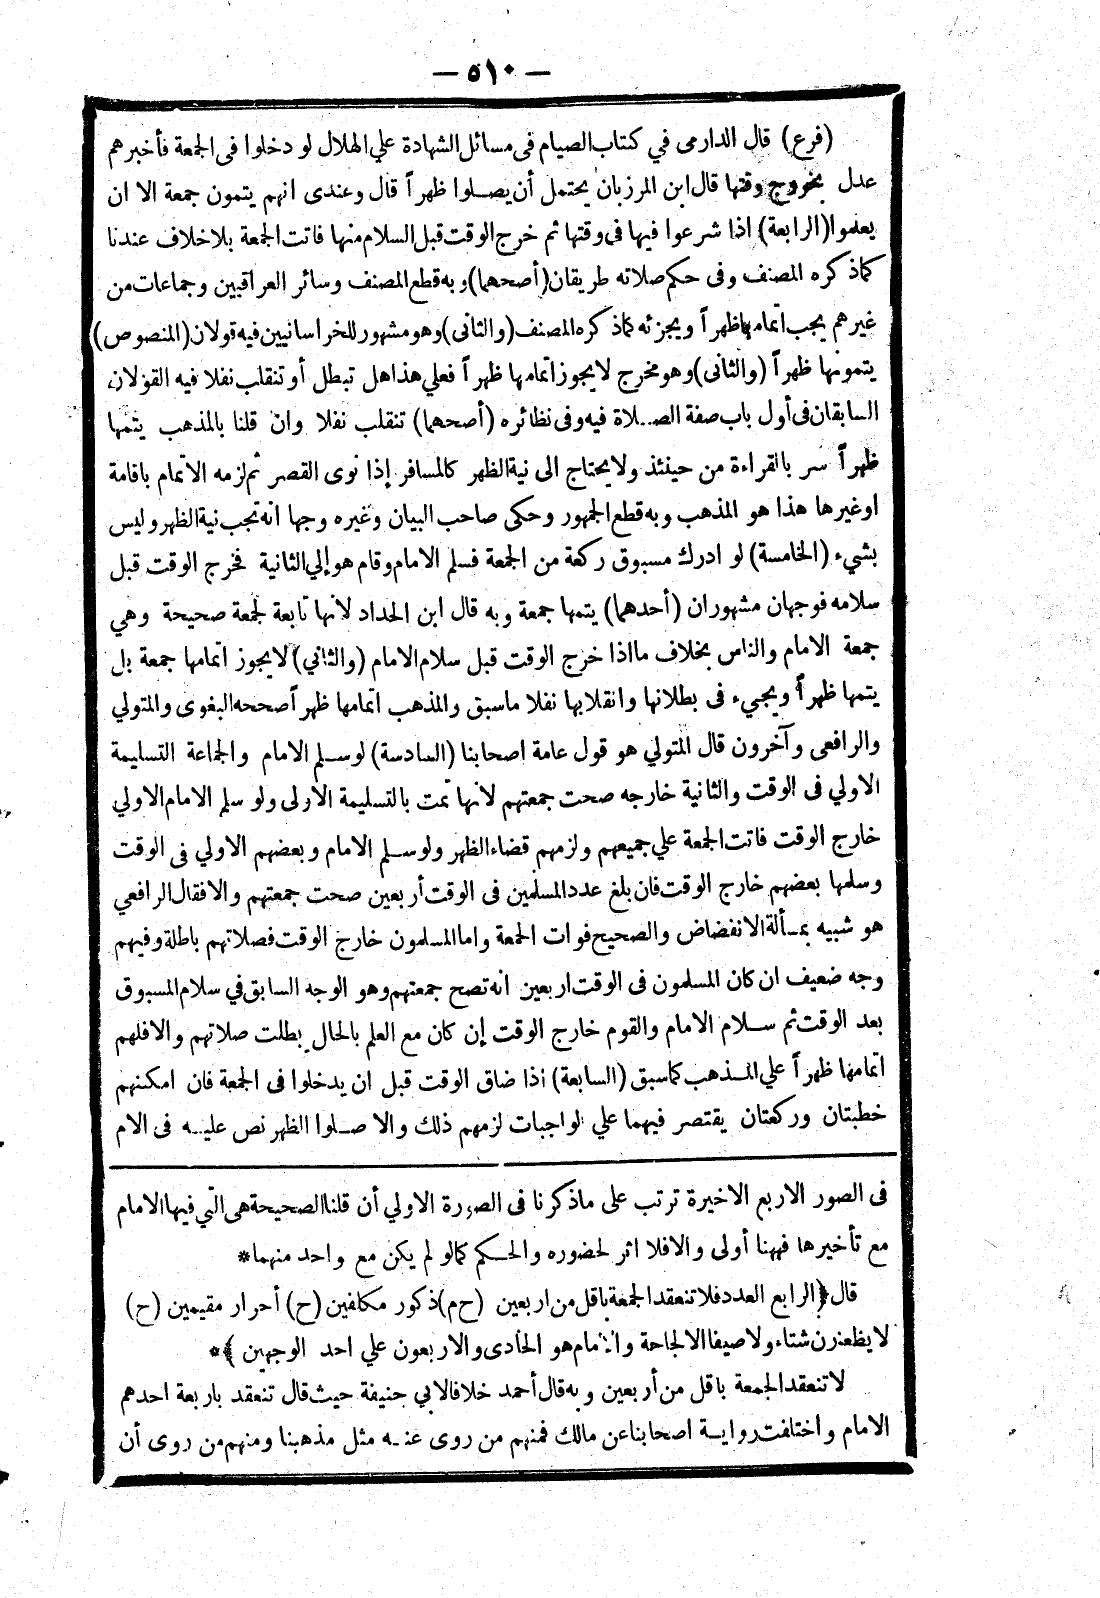 — ٥١٠ —
(فرع) قال الدارمى في كتاب الصيام فى مسائل الشهادة علي الهلال لو دخلوا فى الجمعة فأخبرهم
عدل بخروج وقتها قال ابن المرزبان يحتمل أن يصلوا ظهراً قال وعندى انهم يتمون جمعة الا ان
يعلموا (الرابعة) اذا شرعوا فيها فى وقتها ثم خرج الوقت قبل السلام منها فاتت الجمعة بلاخلاف عندنا
كماذكره المصنف وفى حكم صلاته طريقان (أصحهما) وبه قطع المصنف وسائر العراقيين وجماعات من
غيرهم يجب اتمامها ظهراً ويجزئه كماذكره المصنف (والثانى) وهو مشهور للخراسانيين فيه قولان (المنصوص)
يتمونها ظهراً (والثانى) وهو مخرج لايجوز اتمامها ظهراً فعلي هذا هل تبطل أو تنقلب نفلا فيه القولان
السابقان فى أول باب صفة الصلاة فيه وفى نظائره (أصحهما) تنقلب نفلا وان قلنا بالمذهب يتمها
ظهراً سر بالقراءة من حينئذ ولايحتاج الى نية الظهر كالمسافر إذا نوى القصر ثم لزمه الاتمام باقامة
اوغيرها هذا هو المذهب وبه قطع الجمهور وحكى صاحب البيان وغيره وجها انه تجب نية الظهر وليس
بشيء (الخامسة) لو ادرك مسبوق ركعة من الجمعة فسلم الامام وقام هو إلي الثانية فخرج الوقت قبل
سلامه فوجهان مشهوران (أحدهما) يتمها جمعة وبه قال ابن الحداد لانها تابعة لجمعة صحيحة وهي
جمعة الامام والناس بخلاف مااذا خرج الوقت قبل سلام الامام (والثاني) لايجوز اتمامها جمعة بل
يتمها ظهراً ويجيء فى بطلانها وانقلابها نفلا ماسبق والمذهب اتمامها ظهراً صححه البغوى والمتولي
والرافعى وآخرون قال المتولي هو قول عامة اصحابنا (السادسة) لو سلم الامام والجماعة التسليمة
الاولي فى الوقت والثانية خارجه صحت جمعتهم لانها تمت بالتسليمة الاولى ولو سلم الامام الاولي
خارج الوقت فاتت الجمعة علي جميعهم ولزمهم قضاء الظهر ولو سلم الامام وبعضهم الاولي فى الوقت
وسلمها بعضهم خارج الوقت فان بلغ عدد المسلمين فى الوقت أربعين صحت جمعتهم والا فقال الرافعي
هو شبيه بمسألة الانفضاض والصحيح فوات الجمعة واما المسلمون خارج الوقت فصلاتهم باطلة وفيهم
وجه ضعيف ان كان المسلمون فى الوقت اربعين انه تصح جمعتهم وهو الوجه السابق في سلام المسبوق
بعد الوقت ثم سلام الامام والقوم خارج الوقت إن كان مع العلم بالحال بطلت صلاتهم والا فلهم
اتمامها ظهراً علي المذهب كماسبق (السابعة) اذا ضاق الوقت قبل ان يدخلوا فى الجمعة فان امكنهم
خطبتان وركعتان يقتصر فيهما علي الواجبات لزمهم ذلك والا صلوا الظهر نص عليه فى الام
فى الصور الاربع الاخيرة ترتب على ماذكرنا فى الصورة الاولي أن قلنا الصحيحة هى التي فيها الامام
مع تأخيرها فههنا أولى والا فلا اثر لحضوره والحكم كمالو لم يكن مع واحد منهما*
قال ﴿الرابع العدد فلا تنعقد الجمعة باقل من اربعين (ح م) ذكور مكلفين (ح) أحرار مقيمين (ح)
لايظعنون شتاء ولا صيفا الا لحاجة والامام هو الحادى والاربعون علي احد الوجهين﴾*
لا تنعقد الجمعة باقل من أربعين وبه قال أحمد خلافا لابي حنيفة حيث قال تنعقد باربعة احدهم
الامام واختلفت رواية اصحابنا عن مالك فمنهم من روى عنه مثل مذهبنا ومنهم من روى أن